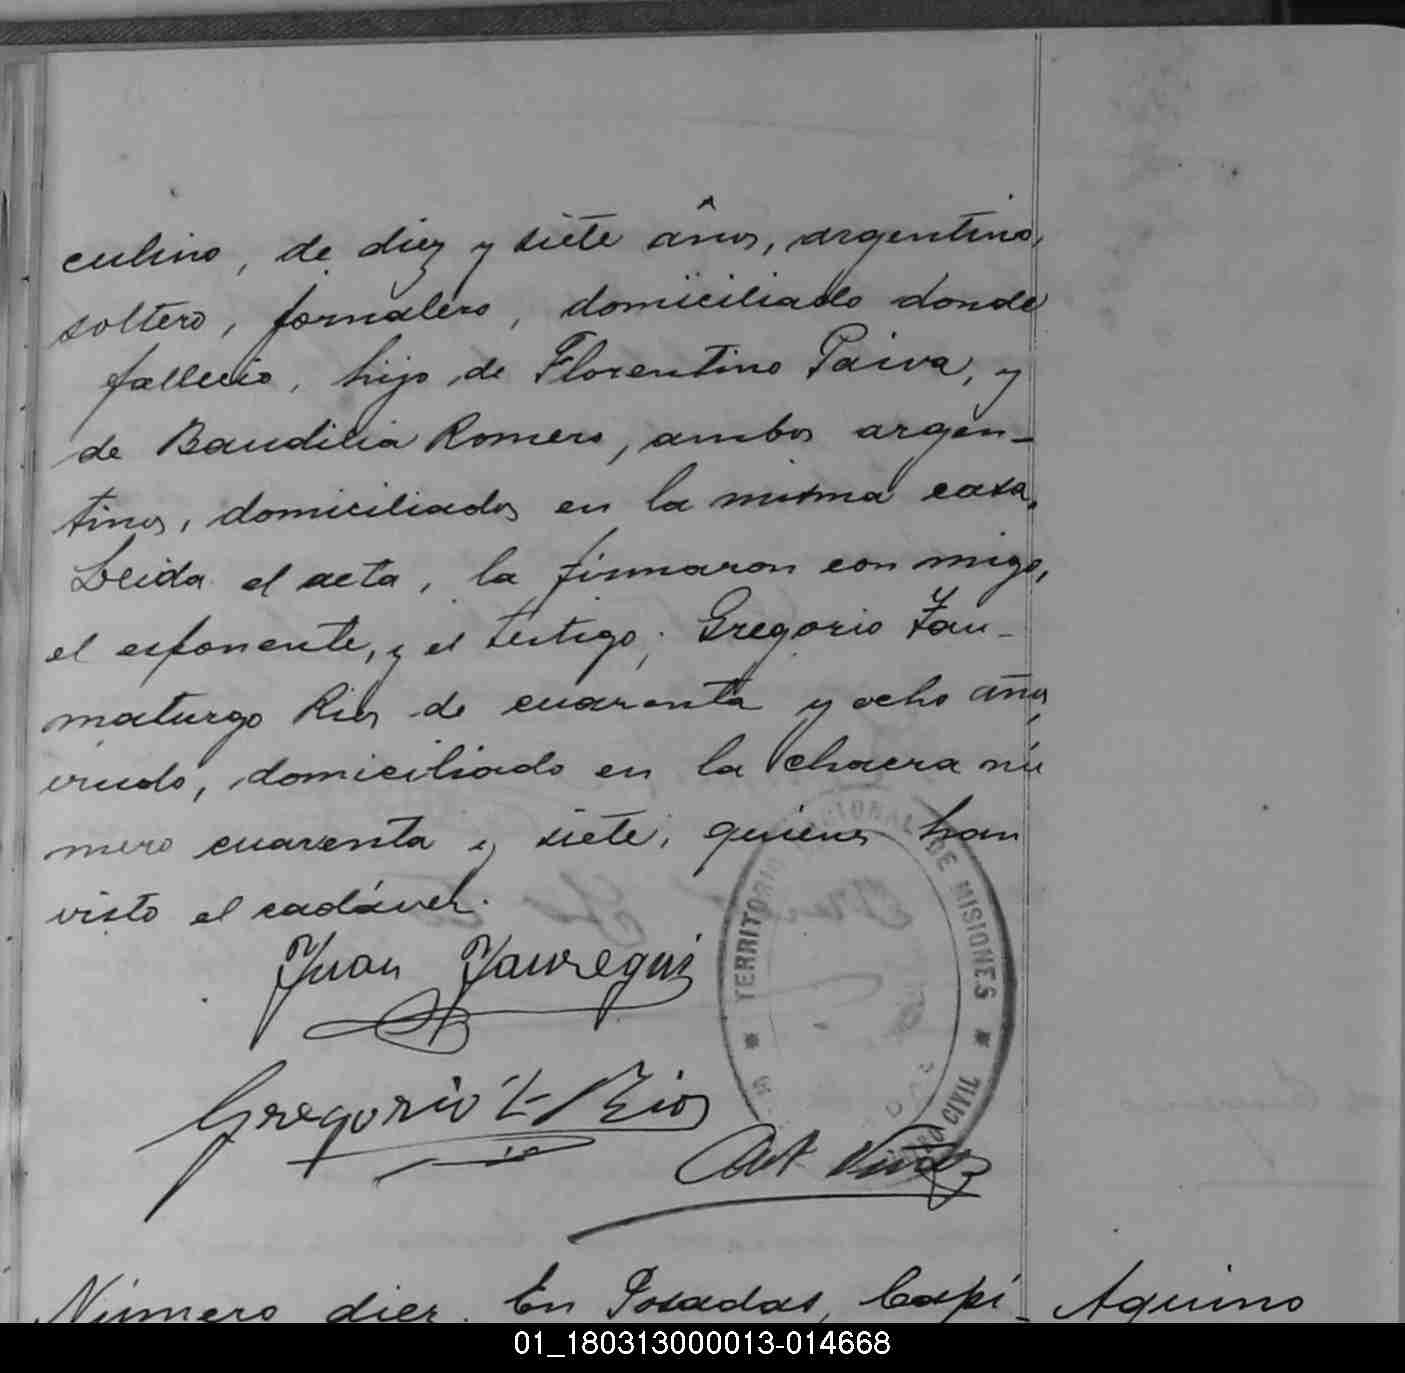 culino, de diez y siete años, argentino,
soltero, jornalero, domiciliado donde
fallecio, hijo de Florentino Paiva, y
de Baudilia Romero, ambos argen-
tinos, domiciliados en la misma casa.
Leida el acta, la firmaron con migo,
el esponente, y el testigo; Gregorio Tau-
maturgo Rios de cuarenta y ocho años
viudo, domiciliado en la chacra nú
mero cuarenta y siete, quienes han
visto el cadáver.
Juan Jauregui
TERRITORIO NACIONAL DE MISIONES
CIVIL
Gregorio T. Rios
Número diez. En Posadas, Capi-
Aquino
01_180313000013-014668